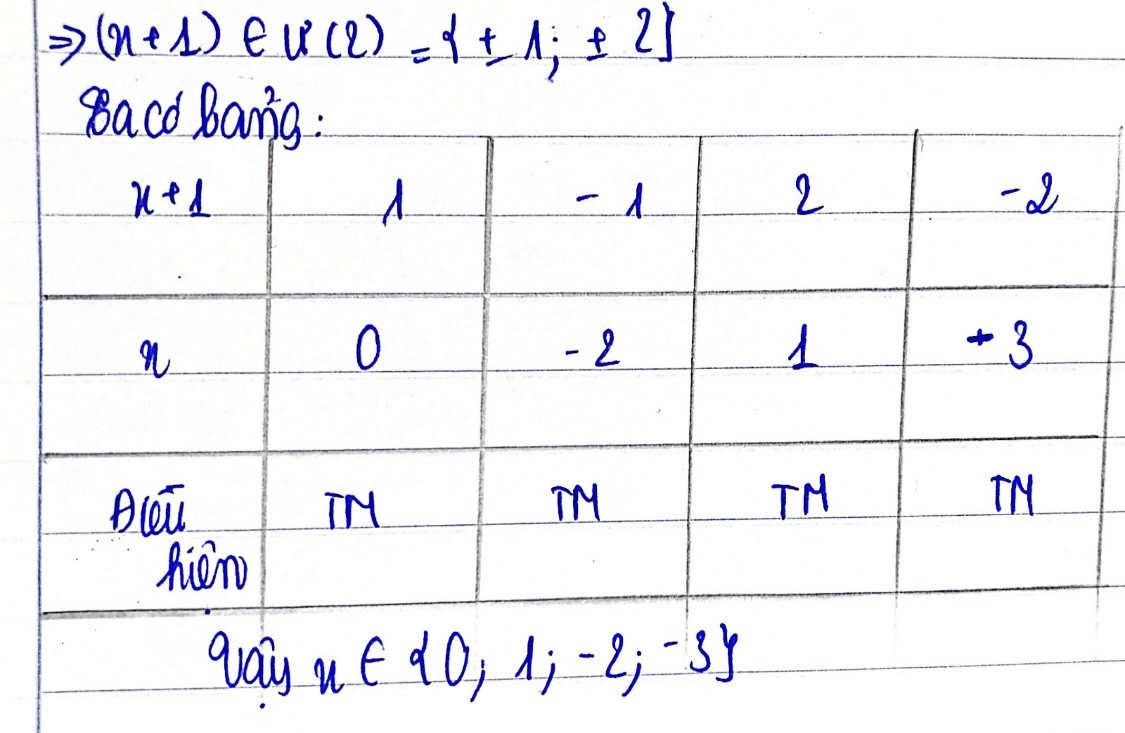 ⇒ (n+1) ∈ Ư(2) = {± 1; ± 2}
Ta có bảng:
n+1 1 -1 2 -2
n 0 -2 1 -3
Điều TM TM TM TM
kiện
Vậy n ∈ {0; 1; -2; -3}